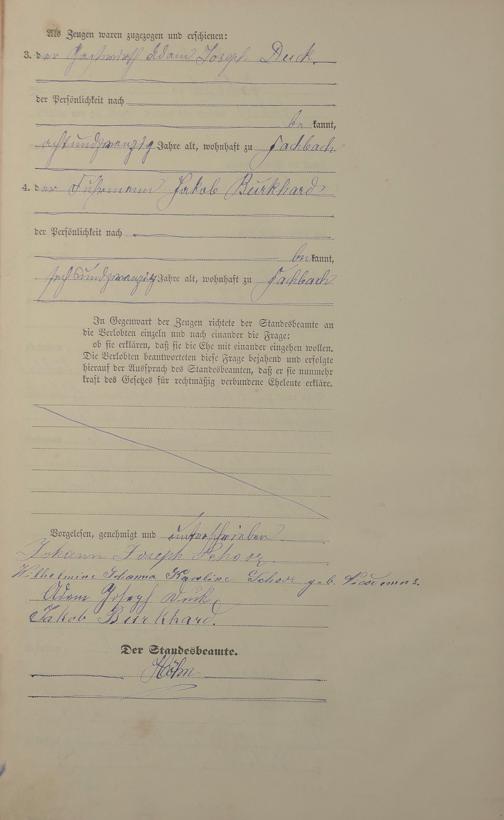 Als Zeugen waren zugezogen und erschienen:
3. der Gastwirth Adam Joseph Deck
der Persönlichkeit nach
be kannt,
achtundzwanzig Jahre alt, wohnhaft zu Fachbach
4. der Fuhrmann Jakob Burkhard
der Persönlichkeit nach
be kannt,
sechsundzwanzig Jahre alt, wohnhaft zu Fachbach
In Gegenwart der Zeugen richtete der Standesbeamte an
die Verlobten einzeln und nach einander die Frage:
ob sie erklären, daß sie die Ehe mit einander eingehen wollen.
Die Verlobten beantworteten diese Frage bejahend und erfolgte
hierauf der Ausspruch des Standesbeamten, daß er sie nunmehr
kraft des Gesetzes für rechtmäßig verbundene Eheleute erkläre.
Vorgelesen, genehmigt und unterschrieben
Johann Joseph
Wilhelmine Johanna Karoline geb.
Adam Joseph Deck
Jakob Burkhard.
Der Standesbeamte.
Höhn